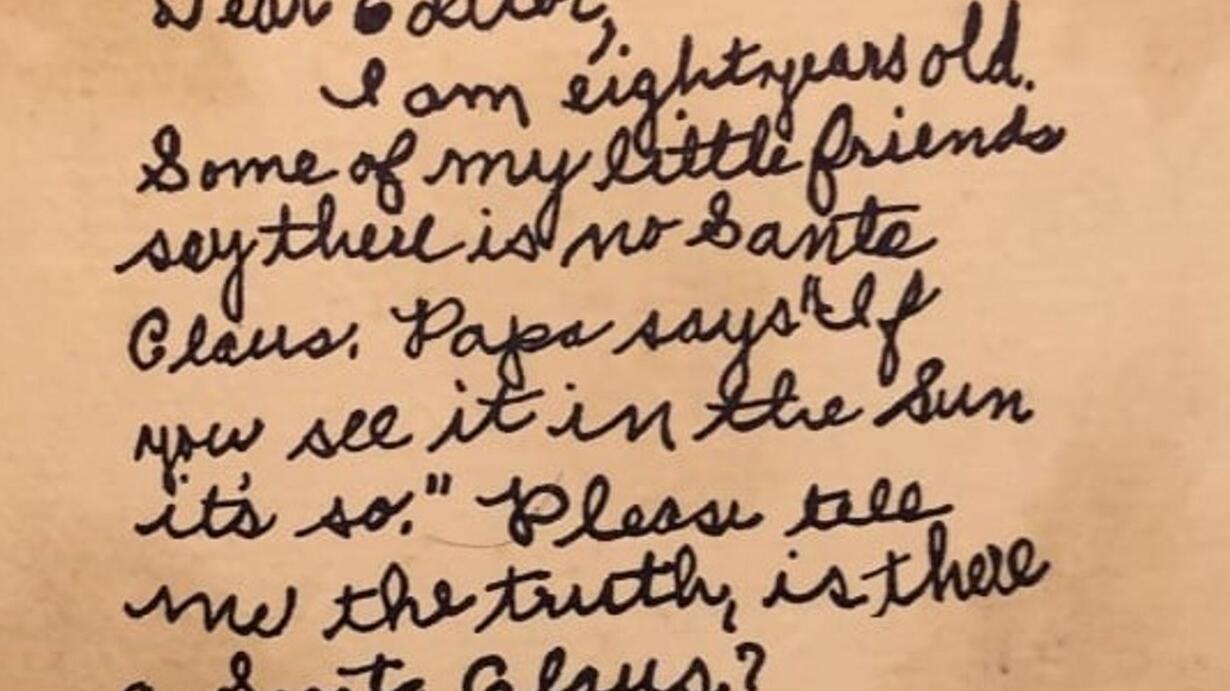 Dear Editor,
I am eight years old.
Some of my little friends
say there is no Santa
Claus. Papa says "If
you see it in the Sun
it's so." Please tell
me the truth, is there
a Santa Claus?